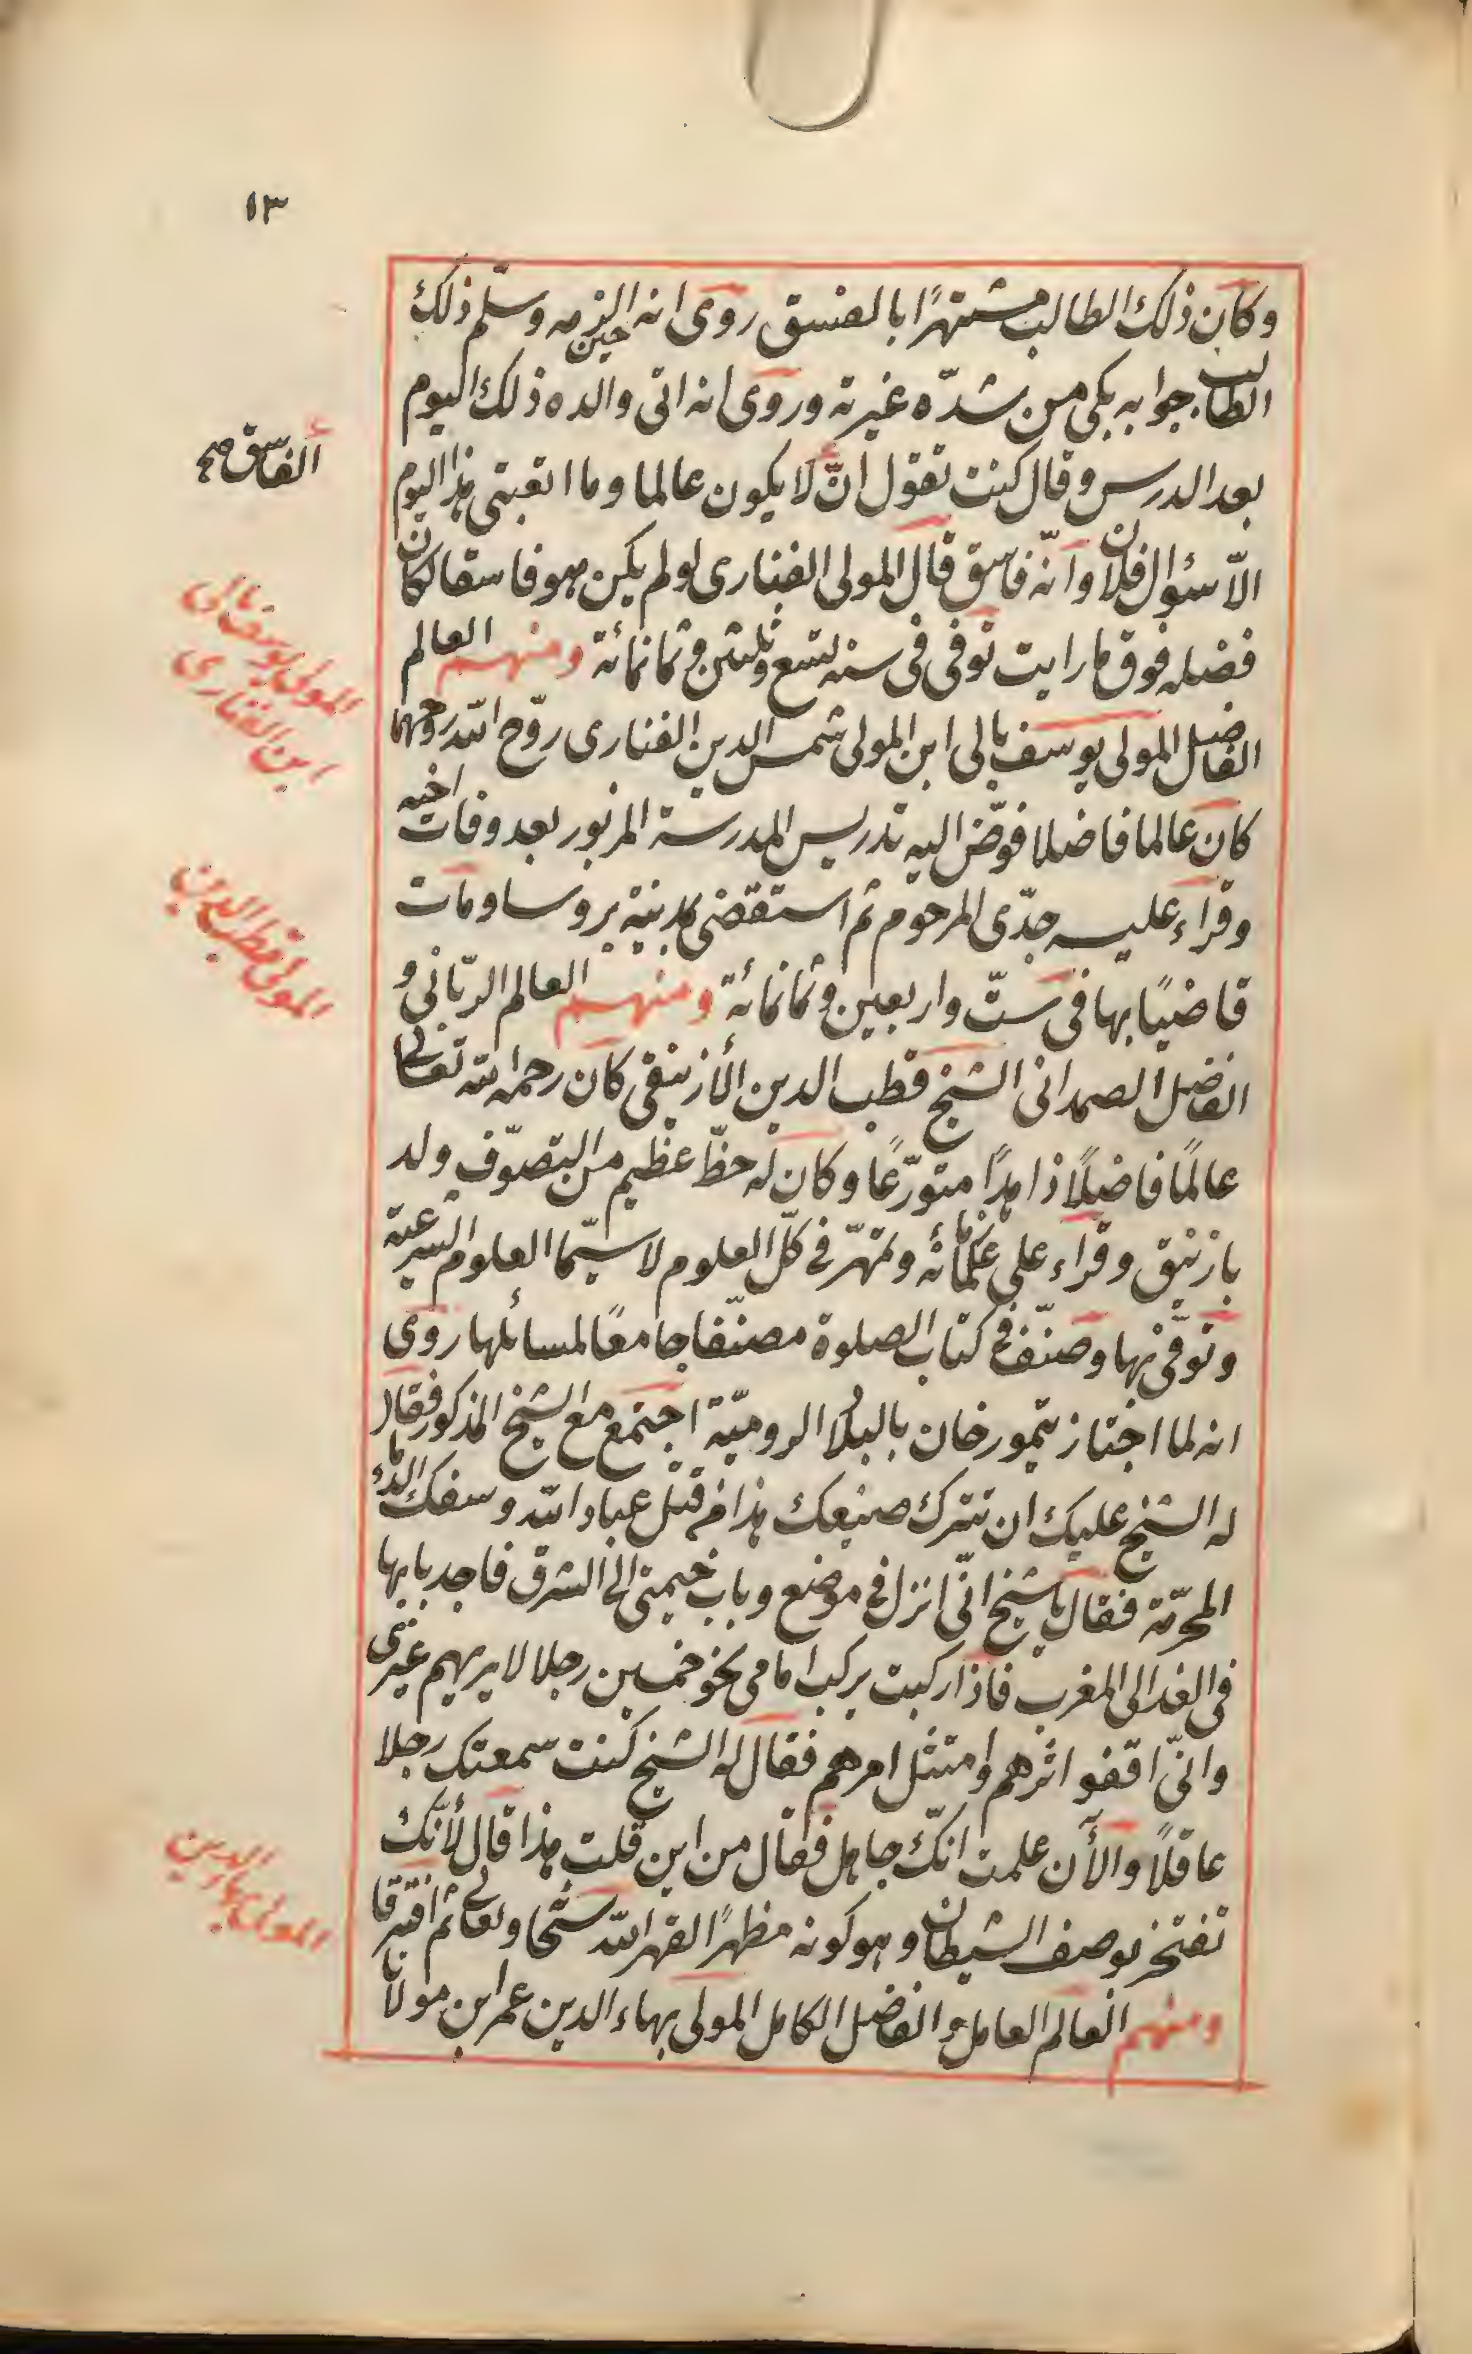 ١٣
وكان ذلك الطالب مشتهرًا بالفسق روى انه حين الزمه وسلّم ذلك
الطالب جوابه بكى من شدّه غيرته وروى انه اتى والده ذلك اليوم
بعد الدرس وقال كنت تقول انّ لا يكون عالما وما اتعبنى هذا اليوم
الفاسق صح
الّا سؤال فلان وانّه فاسق قال المولى الفنارى لو لم يكن هو فاسقا لكان
فضله فوق ما رايت توفى فى سنه تسع وثلثين وثمانمائة ومنهم العالم
المولى يوسف بالى
ابن الفنارى
الفاضل المولى يوسف بالى ابن المولى شمس الدين الفنارى روّح الله روحهما
كان عالما فاضلا فوّض اليه تدريس المدرسة المزبور بعد وفات اخيه
وقراء عليه جدّى المرحوم ثم استقضى بمدينة بروسا ومات
المولى قطب الدين
قاضيًا بها فى ستّ واربعين وثمانمائة ومنهم العالم الربّانى و
الفاضل الصمدانى الشيخ قطب الدين الأزنيقى كان رحمه الله تعالى
عالمًا فاضلًا زاهدًا متورّعًا وكان له حظّ عظيم من التصوّف ولد
بازنيق وقراء على علمائه وتمهّر فى كلّ العلوم لا سيّما العلوم الشرعية
وتوفّى بها وصنّف فى كتاب الصلوة مصنّفا جامعًا لمسائلها روى
انه لما اجتاز تيمور خان بالبلاد الروميّة اجتمع مع الشيخ المذكور فقال
له الشيخ عليك ان تترك صنيعك هذا من قتل عباد الله وسفك الدماء
المحرّمة فقال يا شيخ انّى انزل فى موضع وباب خيمتى الى الشرق فاجد بابها
فى الغد الى المغرب فاذا ركبت يركب امامى نحو خمسين رجلا لا يريهم غيرى
وانّى اقفو اثرهم وامتثل امرهم فقال له الشيخ كنت سمعتك رجلا
عاقلًا والأن علمت انّك جاهل فقال من اين قلت هذا قال لأنّك
المولى بهاء الدين
تفتخر بوصف الشيطان وهو كونه مظهرًا لقهر الله سبحانه وتعالى ثم افترقا
ومنهم العالم العامل و الفاضل الكامل المولى بهاء الدين عمر ابن مولانا